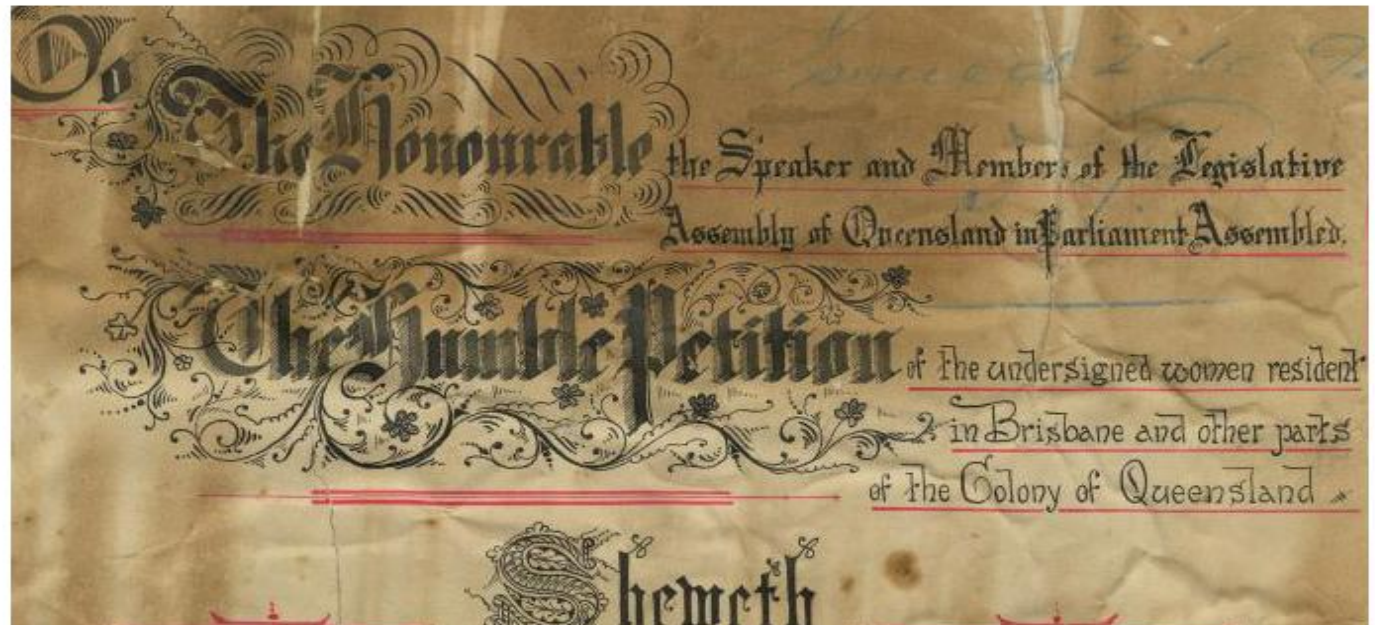 To The Honourable the Speaker and Members of the Legislative
Assembly of Queensland in Parliament Assembled.
The Humble Petition of the undersigned women resident
in Brisbane and other parts
of the Colony of Queensland
Sheweth